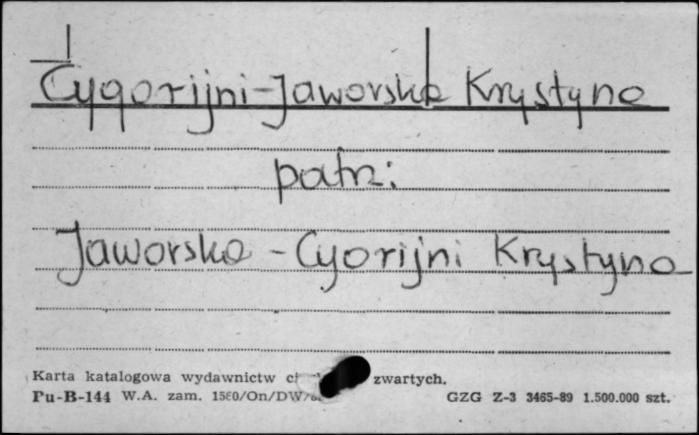 Cygorijni-Jaworska Krystyna
patrz:
Jaworska - Cyorijni Krystyna
Karta katalogowa wydawnictw zwartych.
Pu-B-144 W.A. zam. 1560/On/DW/
GZG Z-3 3465-89 1.500.000 szt.